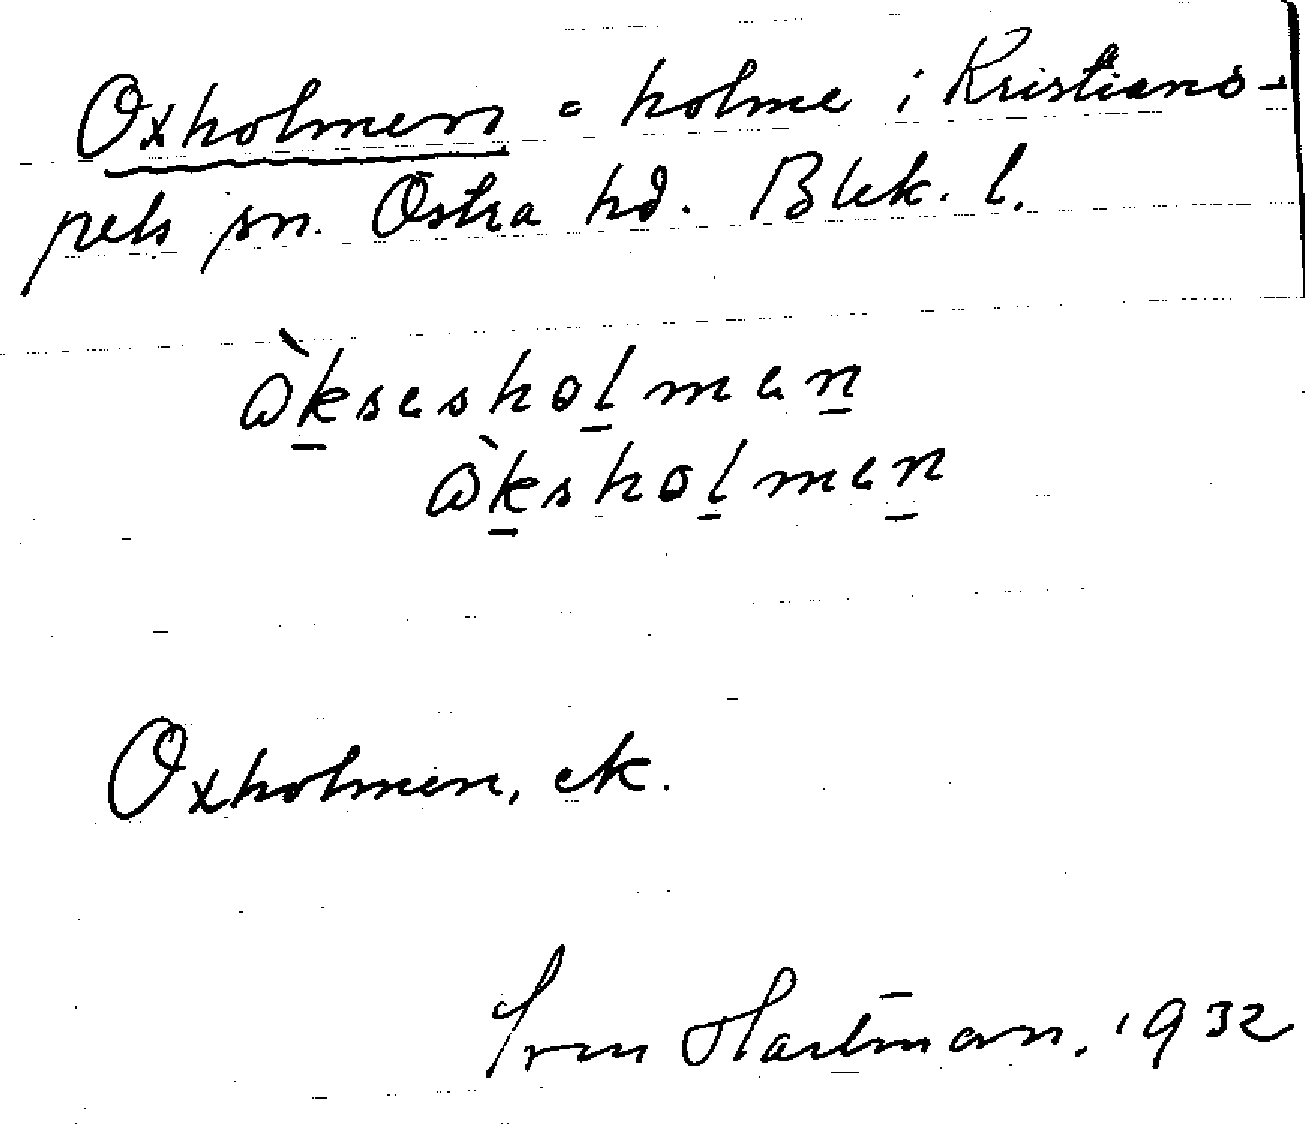 Oxholmen = holme i Kristiano-
pels sn. Östra hd. Blek. l.
ɷ̀ksesholmen
ɷ̀ksholmen
Oxholmen, ek.
Sven Hartman, 1932